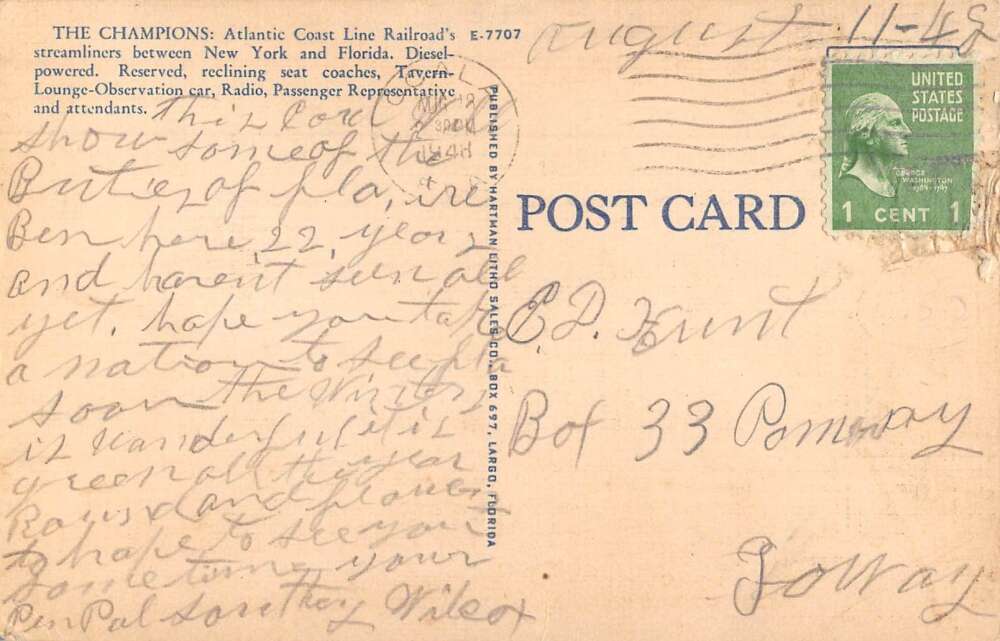 THE CHAMPIONS: Atlantic Coast Line Railroad's
streamliners between New York and Florida. Diesel-
powered. Reserved, reclining seat coaches, Tavern-
Lounge-Observation car, Radio, Passenger Representative
and attendants.
E-7707
August 11-48
This Card will
show some of the
Buties of fla, ive
Ben here 22, years
and haven't seen all
yet, hope you take
a nation to see fla
soon the Winters
is wanderful it is
green all the year
Round and flowers
to hope to see you
sometime, your
Pen Pal Wilcox
PUBLISHED BY HARTMAN LITHO SALES CO., BOX 697, LARGO, FLORIDA
OCALA
AUG 12
1948
POST CARD
UNITED
STATES
POSTAGE
GEORGE
WASHINGTON
1789-1797
1 CENT 1
C.D. Hunt
Box 33 Pomeroy
Ioway